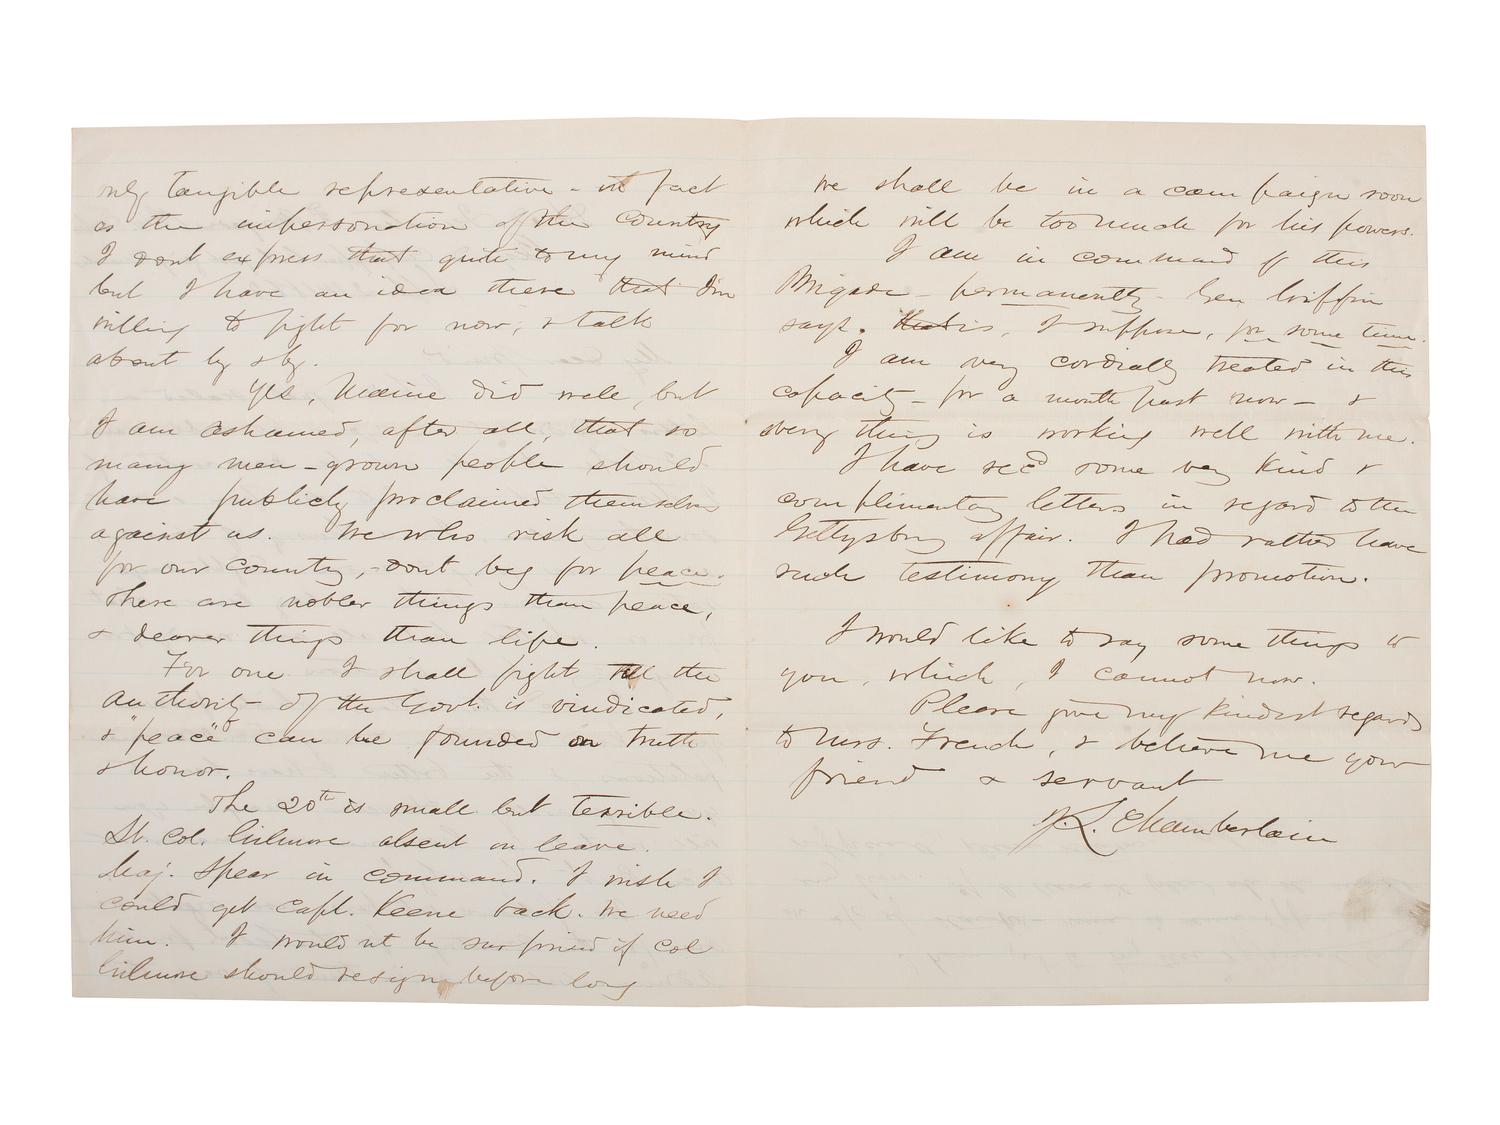 only tangible representative - in fact
as the impersonation of the country
I dont express that quite to my mind
but I have an idea there that I'm
willing to fight for now, & talk
about by & by.
Yes, Maine did vote, but
I am ashamed, after all, that so
many men - grown people should
have publicly proclaimed themselves
against us. We who risk all
for our country, - dont beg for peace.
There are nobler things than peace,
& dearer things than life.
For one I shall fight till the
authority of the Govt. is vindicated,
& "peace" can be founded on truth
& honor.
The 20th is small but terrible.
Lt. Col. Gilmore absent on leave.
Maj. Spear in command. I wish I
could get Capt. Keene back. We need
him. I would nt be surprised if Col
Gilmore should resign before long
We shall be in a campaign soon
which will be too much for his powers.
I am in command of this
Brigade - permanently - Gen Griffin
says. that is, I suppose, for some time.
I am very cordially treated in this
capacity - for a month past now - &
every thing is working well with me.
I have recd some very kind &
complimentary letters in regard to the
Gettysburg affair. I had rather have
such testimony than promotion.
I would like to say some things to
you, which, I cannot now.
Please give my kindest regards
to Mrs. French, & believe me your
friend & servant
J. L. Chamberlain